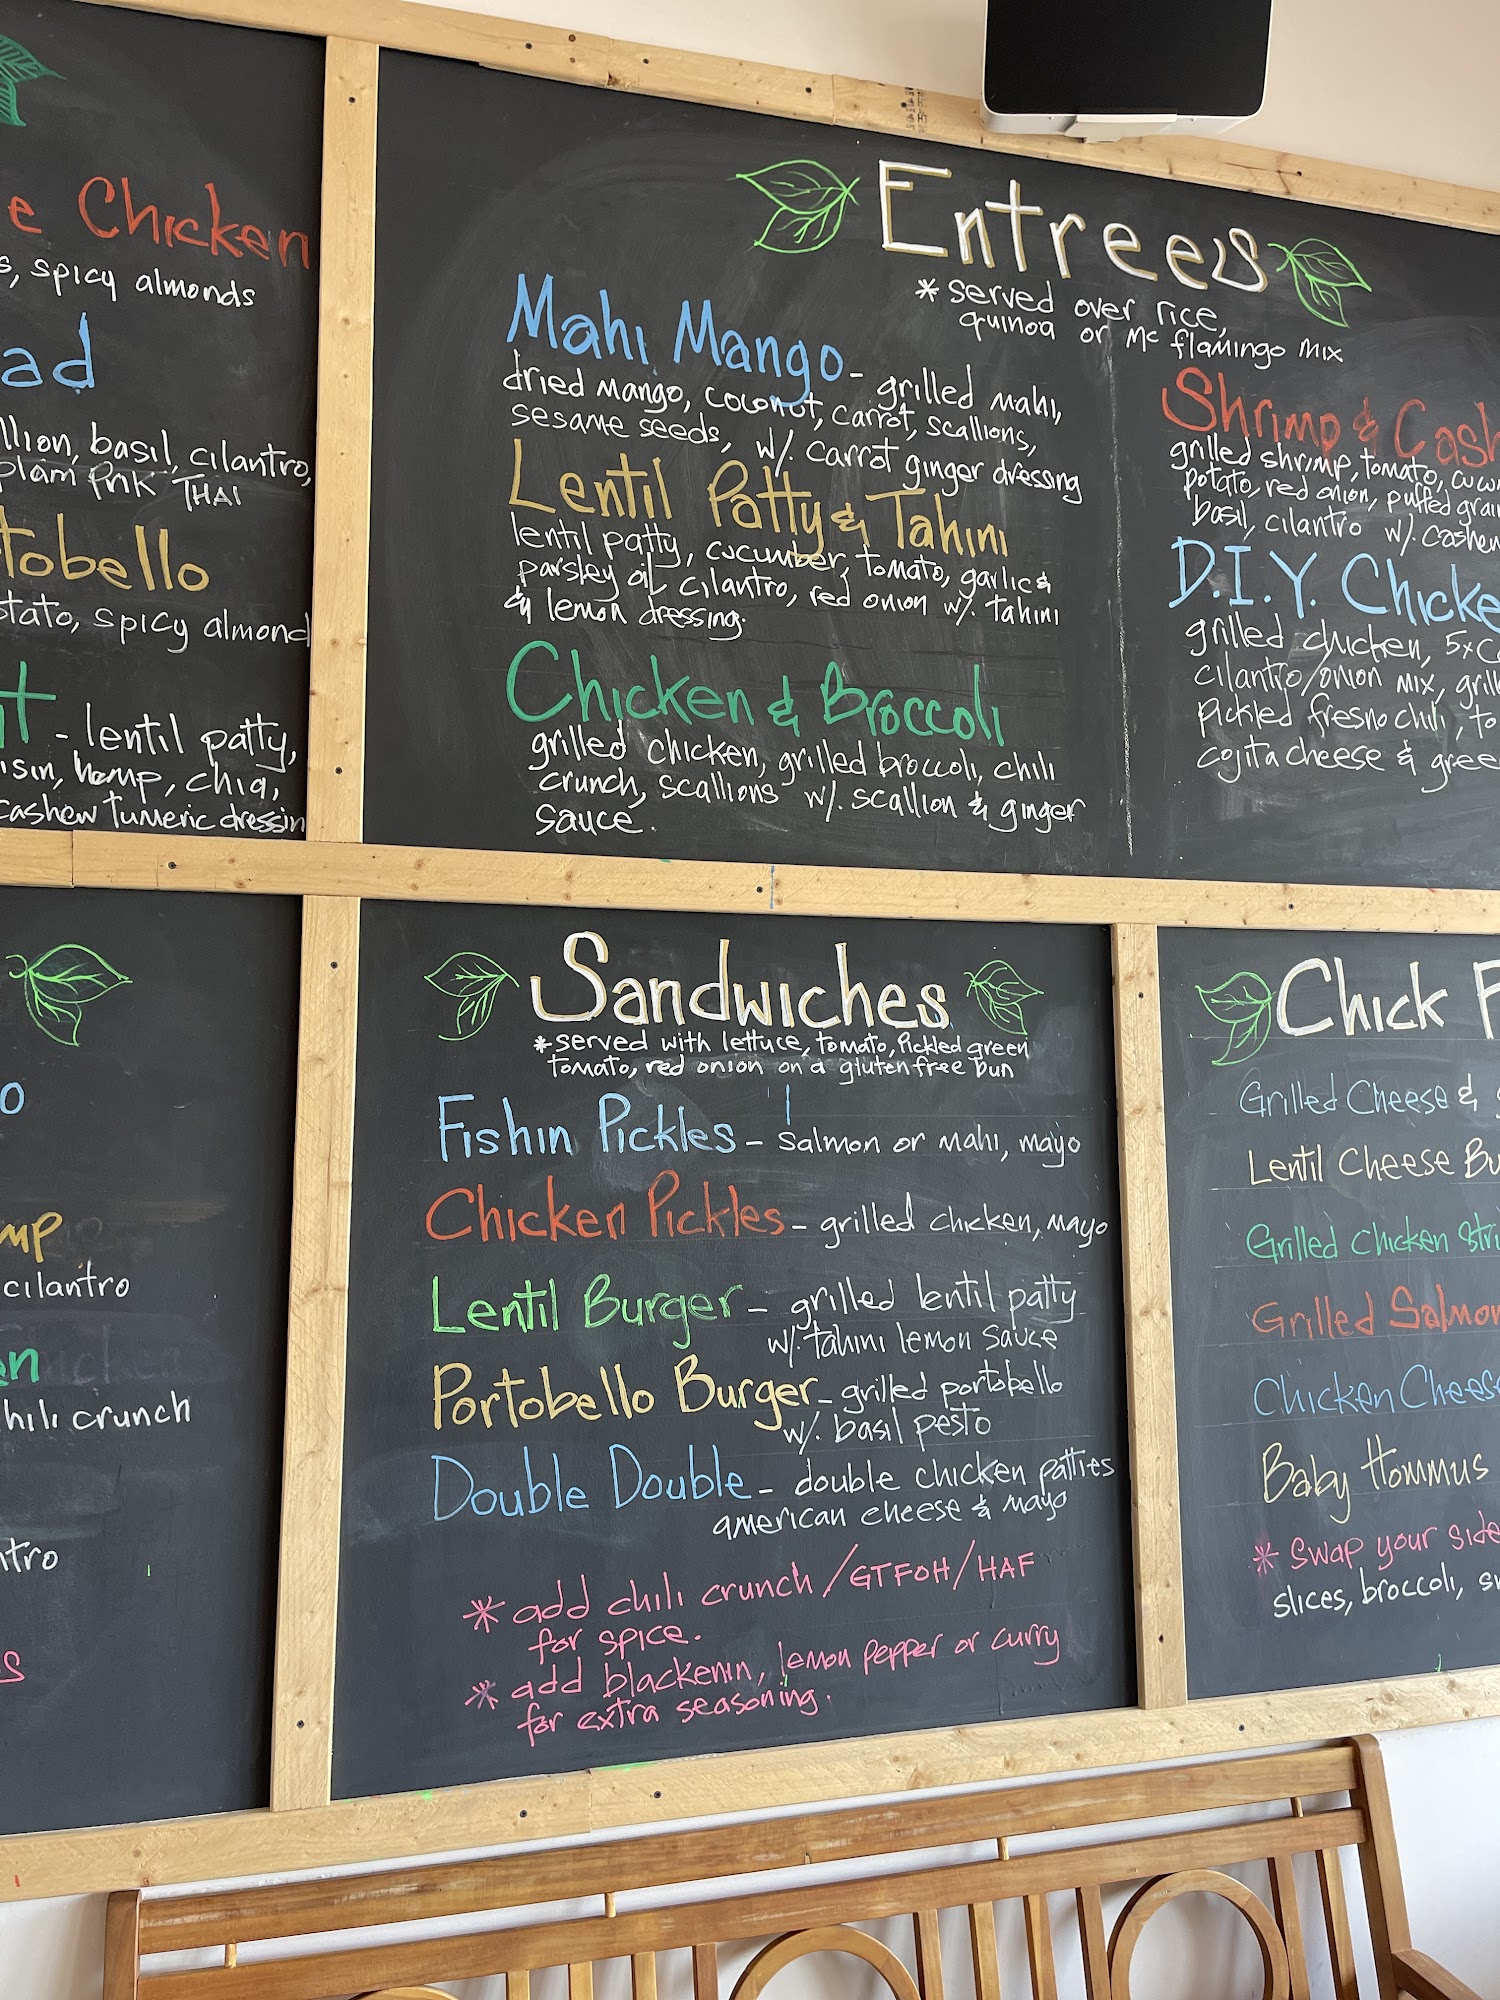 Chicken
spicy almonds
basil, cilantro,
Pink THAI
spicy almond
- lentil patty,
hemp, chia,
cashew tumeric dressin
Entrees
*served over rice,
quinoa or Mc flamingo mix
Mahi Mango - grilled mahi,
dried mango, coconut, carrot, scallions,
sesame seeds, w/. carrot ginger dressing
Lentil Patty & Tahini
lentil patty, cucumber, tomato, garlic &
parsley oil, cilantro, red onion w/. tahini
& lemon dressing.
Chicken & Broccoli
grilled chicken, grilled broccoli, chili
crunch, scallions w/. scallion & ginger
sauce.
Shrimp & Cash
grilled shrimp, tomato, cucum
potato, red onion, puffed grai
basil, cilantro w/. cashew
D.I.Y. Chicke
grilled chicken, 5x
cilantro/onion mix, gril
pickled fresno chili, to
cojita cheese & gree
cilantro
chili crunch
Sandwiches
*served with lettuce, tomato, Pickled green
tomato, red onion on a gluten free bun
Fishin Pickles - salmon or mahi, mayo
Chicken Pickles - grilled chicken, mayo
Lentil Burger - grilled lentil patty
w/. tahini lemon sauce
Portobello Burger - grilled portobello
w/. basil pesto
Double Double - double chicken patties
american cheese & mayo
* add chili crunch/GTFOH/HAF
for spice.
* add blackenin, lemon pepper or curry
for extra seasoning.
Chick F
Grilled Cheese &
Lentil Cheese Bu
Grilled Chicken Stri
Grilled Salmon
Chicken Cheese
Baby Hommus
* Swap your side
slices, broccoli,